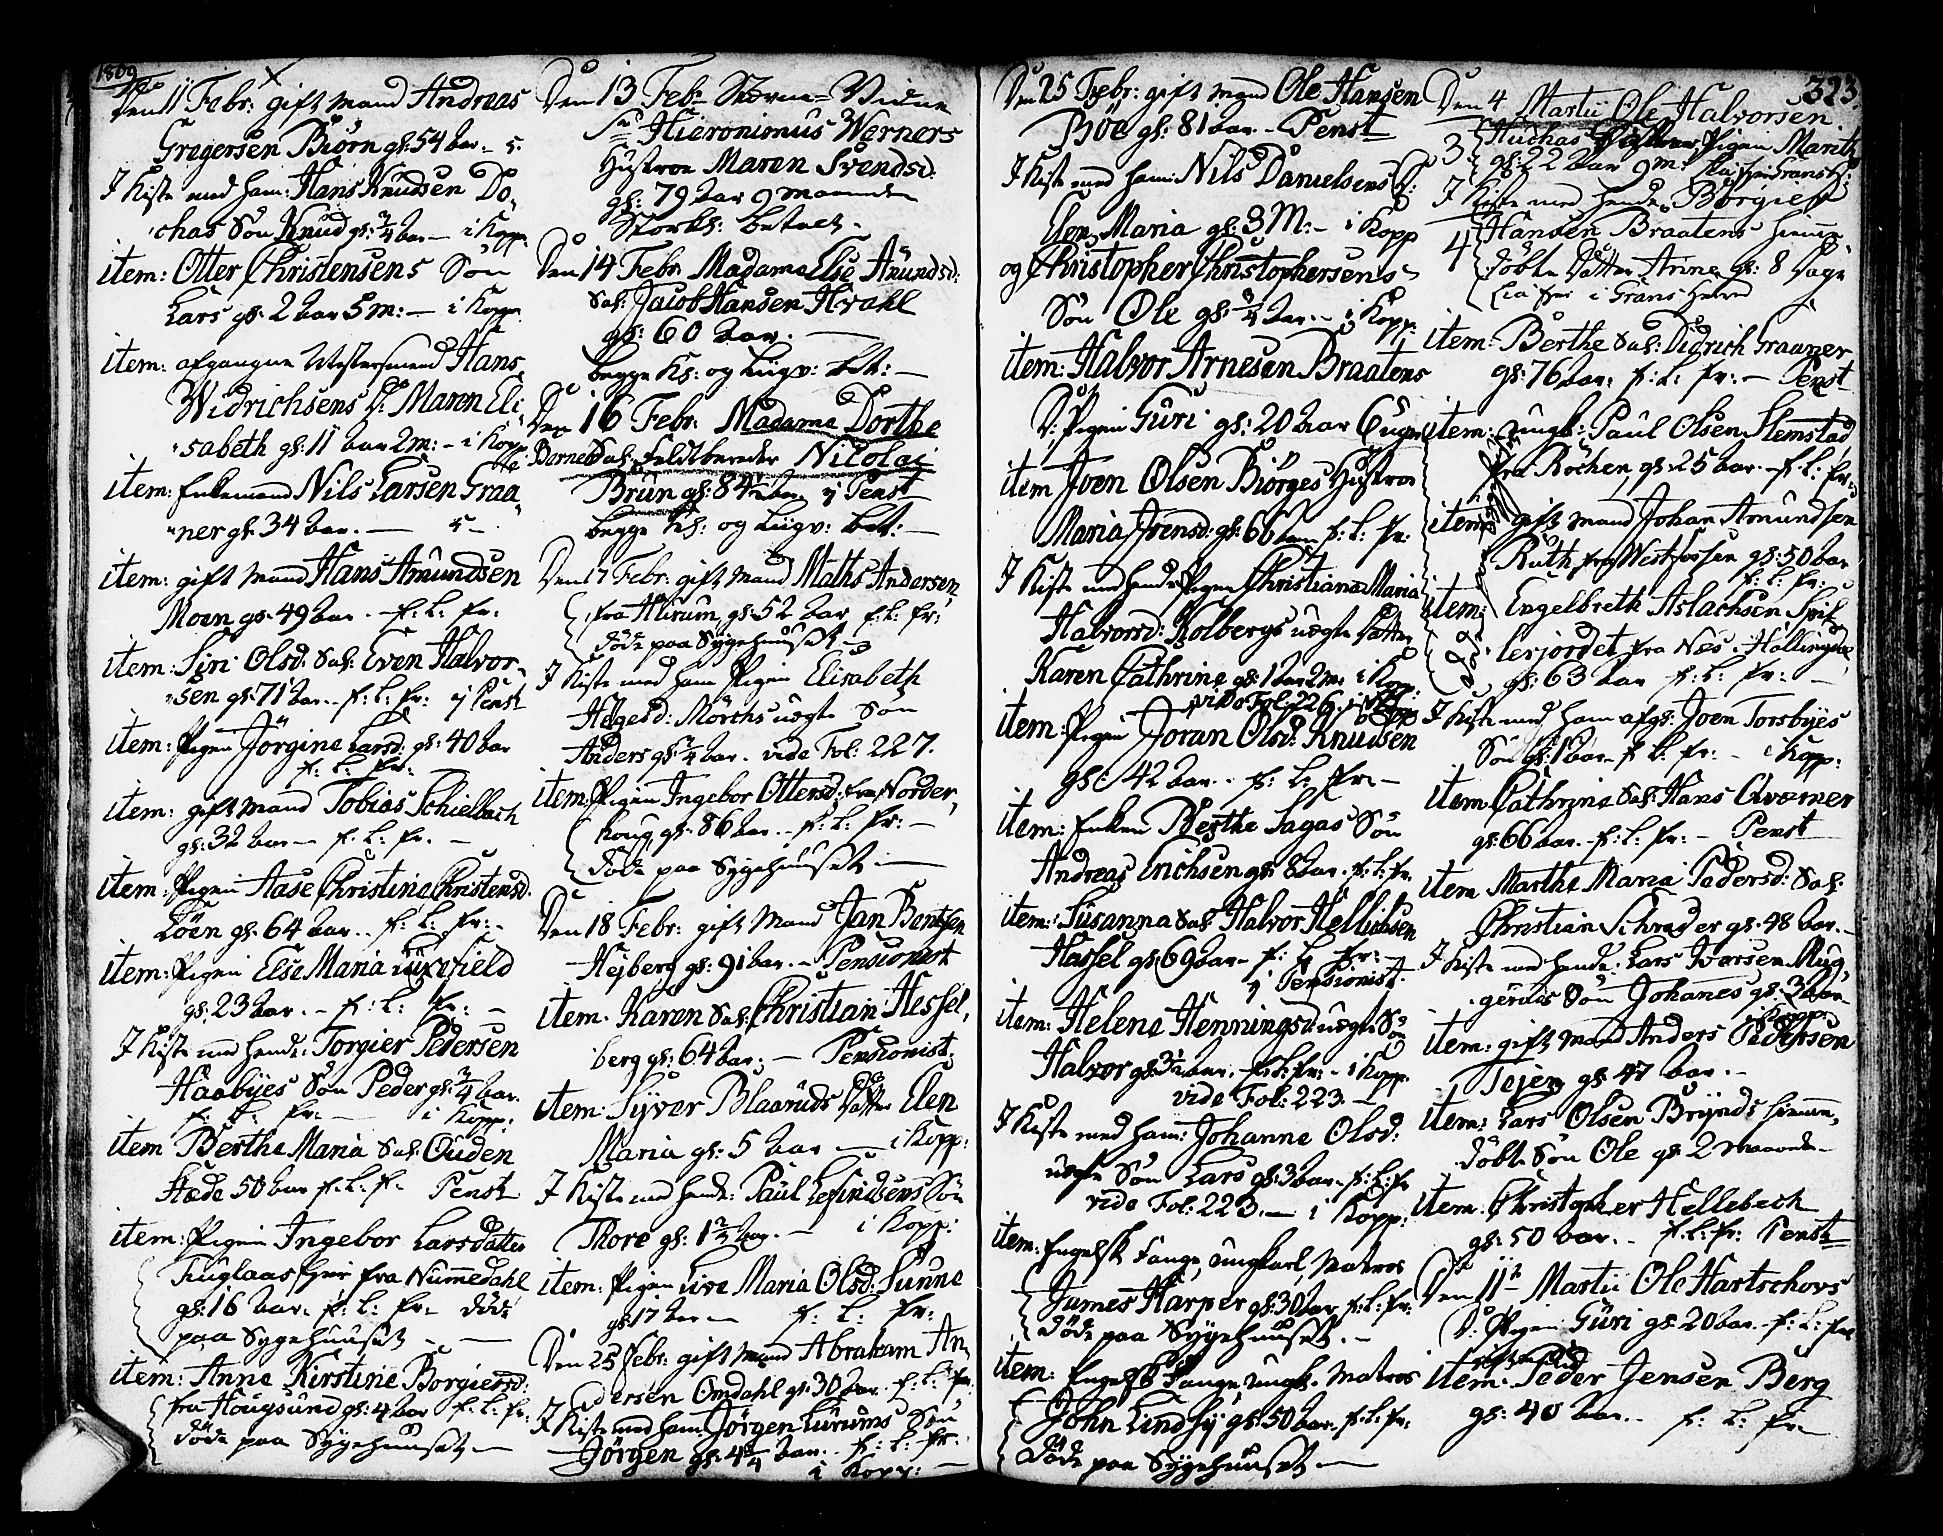 1809
Den 11 Febr: gift Mand Andreas
Gregersen Biørn gl: 54 aar – 5.
I Kiste med ham: Hans Knudsen Do-
chas Søn Knud gl: 3/4 aar – i Kopp
item: Otter Christensens Søn
Lars gl: 2 aar 5 m: – i Kopp
item: afgangne Mestersmend Hans
Widrichsens D: Maren Eli-
sabeth gl: 11 aar 2 m: – i Kop
item: Enkemand Nils Larsen Graa-
ner gl: 34 aar. – 5 –
item: gift Mand Hans Amundsen
Moen gl: 49 aar. – f: L: fr:
item: Siri Olsd: Sal: Even Halvor-
sen gl: 71 aar. f: L: fr: ej Penst
item: Pigen Jörgine Larsd: gl: 40 aar
f: L: fr:
item: gift Mand Tobias Schielbach
gl: 32 aar – f: L: fr. –
item: Pigen Aase Christine Christensd.
Löen gl: 64 aar. f: L: fr:
item: Pigen Else Maria
gl: 23 aar. – f: L: fr: –
I Kiste med hende: Torgier Pedersen
Haabyes Søn Peder gl: 3/4 aar.
f: L: fr. – i Kopp:
item Berthe Maria Sal: Ouden
Stæde 50 aar f: L: f. Penst
item: Pigen Ingebor Larsdatter
Fuglaas Ejer fra Nummedahl
gl: 16 aar. f: L: fr – døde
paa Sygehuuset –
item: Anne Kirstine Borgiersd:
fra Hougsund gl: 4 aar f: L: fr:
døde paa Sygehuuset –
Den 13 Feb:
Sr Hieronimus Werners
Hustroe Maren Svendsd:
gl: 79 aar 9 maaneder
Storkl: betalt –
Den 14 Febr Madame Else Amundsd:
Sal: Jacob Hansen Hvahl
gl: 60 aar. –
begge Kl: og Liigv: bet: –
Den 16 Febr. Madame Dorthe
Sal: Feldtbereder Nicolai
Brun gl: 84 1/2 aar ej Penst
begge Kl: og Liigv: bet: –
Den 17 Febr: gift Mand Maths Andersen
fra Hurum, gl: 52 aar f: L: fr:
døde paa Sygehuuset –
I Kiste med ham Pigen Elisabeth
Helgesd: Mörchs uægte Søn
Anders gl: 3/4 aar. vide Fol: 227.
item: Pigen Ingebor Ottersd: fra Norder-
houg, gl: 86 aar. – f: L: fr: –
døde paa Sygehuuset –
Den 18 Febr: gift Mand Jan Bentsen
Hejberg gl: 91 aar. – Pensionist
item. Karen Sal: Christian Hessel-
berg gl: 64 aar: – Pensionist:
item: Syver Blaaruds Datter Elen
Maria gl: 5 aar – i Kopp:
I Kiste med hende: Paul Lofindsens Søn
Thore gl: 1 3/4 aar. – i Kopp:
item: Pigen Live Maria Olsd: Sunne
gl: 17 aar – f: L: fr:
Den 25 Febr: gift Mand Abraham An-
dersen Omdahl gl: 30 aar. f: L: fr
I Kiste med ham: Jörgen Lurums Søn
Jörgen gl: 4 3/4 aar. f: L: fr.
i Kopp: –
Den 25 Febr: gift Mand Ole Hansen
Böe gl: 81 aar. – Penst
I Kiste med ham: Nils Danielsens D:
Elen Maria gl: 3 M: – i Kopp
og Christopher Christophersens
Søn Ole gl: 3/4 aar. – i Kopp:
item: Halvor Arnesen Braatens
D: Pigen Guri gl: 20 aar 6 uger
item Joen Olsen Biörges Hustroe
Maria Joensd: gl: 66 aar f: L: fr:
I Kiste med hende Pigen Christiana Maria
Halvorsd: Kolbergs uægte Datter
Karen Cathrine gl: 1 aar 2 m: i Kopp:
vide Fol: 226.
item: Pigen Joran Olsd: Knudsen
gl: 42 aar. – f: L: fr: –
item: Enken Berthe Sagas Søn
Andreas Erichsen gl: 8 aar. f: L: fr.
item: Susanna Sal: Halvor Hellichsen
Hassel gl: 69 aar – f: L: fr: –
ej Pensionist.
item: Helene Henningsd: uægte Søn
Halvor gl: 3 1/2 aar. f: L: fr: – i Kopp.
vide Fol: 223. –
I Kiste med ham: Johanne Olsd:
uægte Søn Lars gl: 3 aar. f: L: fr
vide Fol: 223. – i Kopp:
item: Engelsk Fange, ungkarl, Matros
James Harper gl: 30 aar f: L: fr:
døde paa Sygehuuset. –
item: Engelsk Fange, ungk. Matros
John Lindsy gl: 50 aar. f: L: fr:
døde paa Sygehuuset. –
323.
Den 4 Martii Ole Halvorsen
3. Pigen Marith
gl: 22 aar 9 m:
I Kiste med hende, Borgier
4 Hansen Braatens hieme-
døbte Datter Anne gl: 8 Dage
item: Berthe Sal: Didrich Graaner
gl: 76 aar. f: L: fr: – Penst
item: ungk: Paul Olsen Stemstad
fra Röchen, gl: 25 aar. – f: L: fr:
item: gift Mand Johan Amundsen
Ruth fra Westfossen gl: 50 aar
f: L: fr:
item: Engelbreth Aslachsen Spil-
lerjordet fra Næs i Hallingdal
gl: 63 aar f: L: fr: –
I Kiste med ham afg: Joen Torsbyes
Søn gl: 1 aar f: L: fr: – i Kopp:
item Cathrine Sal: Hans Qværner
gl: 66 aar. – f: L: fr: – Penst
item Marthe Maria Pedersd: Sal:
Christian Schrader gl: 48 aar. –
I Kiste med hende: Lars Iversen Mug-
gerüds Søn Johanes gl: 3 aar
i Kopp:
item: gift Mand Anders Pedersen
Tejen gl: 47 aar. –
item: Lars Olsen Brynds hieme-
døbte Søn Ole gl: 2 maaneder
item: Christopher Hellebech
gl: 50 aar. – f: L: fr: Penst
Den 11te Martii Ole Hartschovs
D: Pigen Guri gl: 20 aar. – f: L: fr
item: Peder Jensen Berg
gl: 40 aar. – f: L: fr